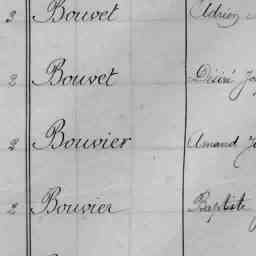 2 Bouvet Adrien
2 Bouvet Désiré
2 Bouvier Amand
2 Bouvier Baptiste